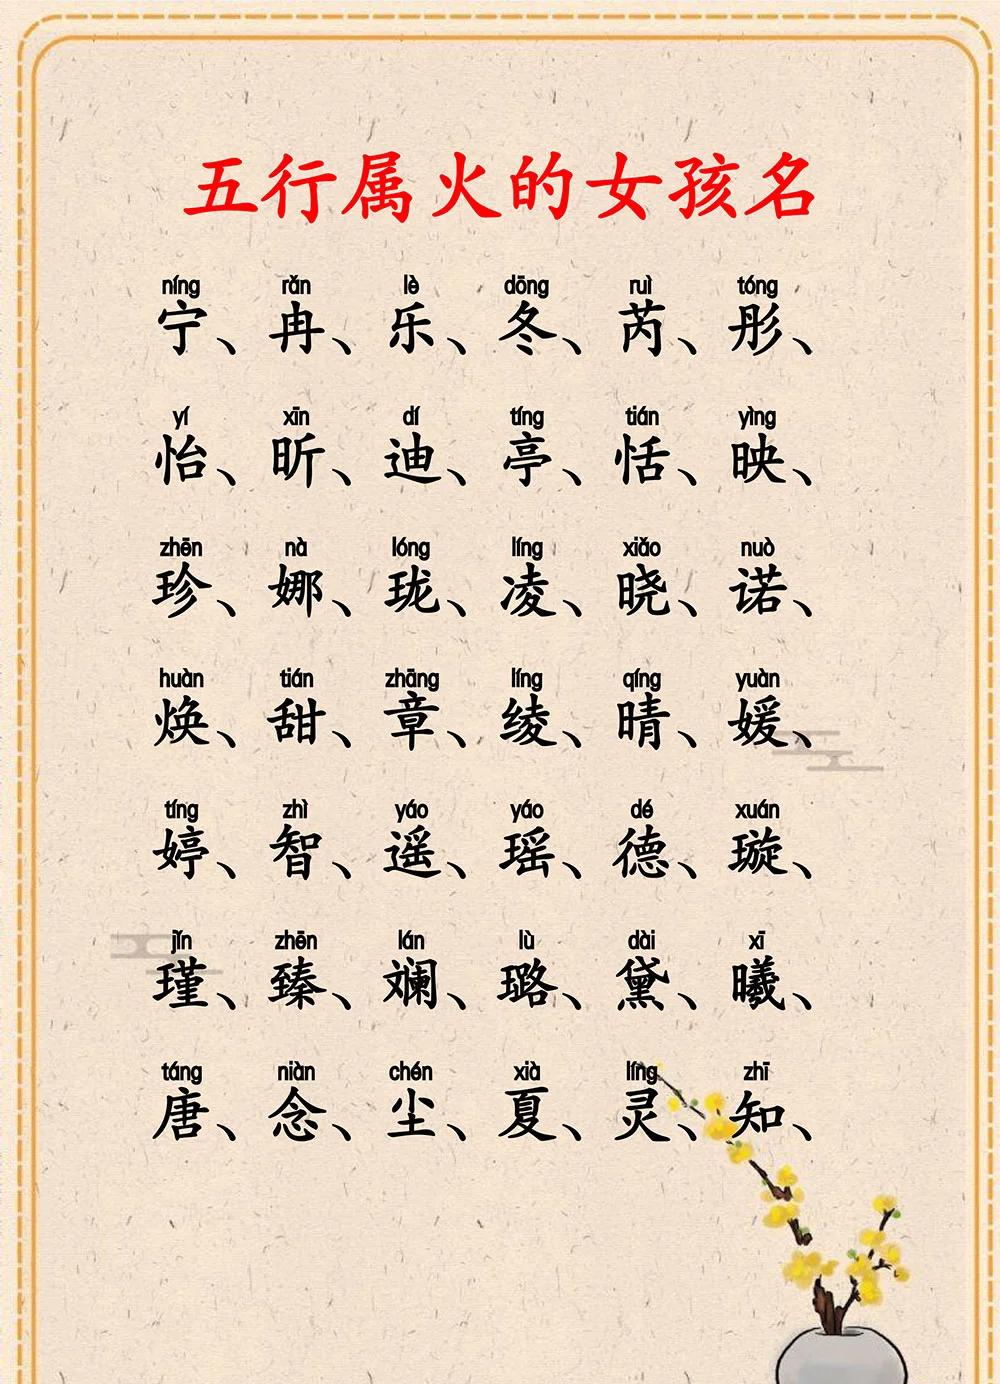 五行属火的女孩名
níng rǎn lè dōng ruì tóng
宁、冉、乐、冬、芮、彤、
yí xīn dí tíng tián yìng
怡、昕、迪、亭、恬、映、
zhēn nà lóng líng xiǎo nuò
珍、娜、珑、凌、晓、诺、
huàn tián zhāng líng qíng yuàn
焕、甜、章、绫、晴、媛、
tíng zhì yáo yáo dé xuán
婷、智、遥、瑶、德、璇、
jǐn zhēn lán lù dài xī
瑾、臻、斓、璐、黛、曦、
táng niàn chén xià líng zhī
唐、念、尘、夏、灵、知、